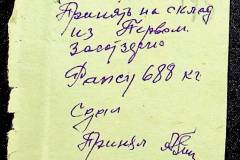 Принять на склад
из Первом.
Заготзерно
Рапсу 688 кг
Сдал
Принял